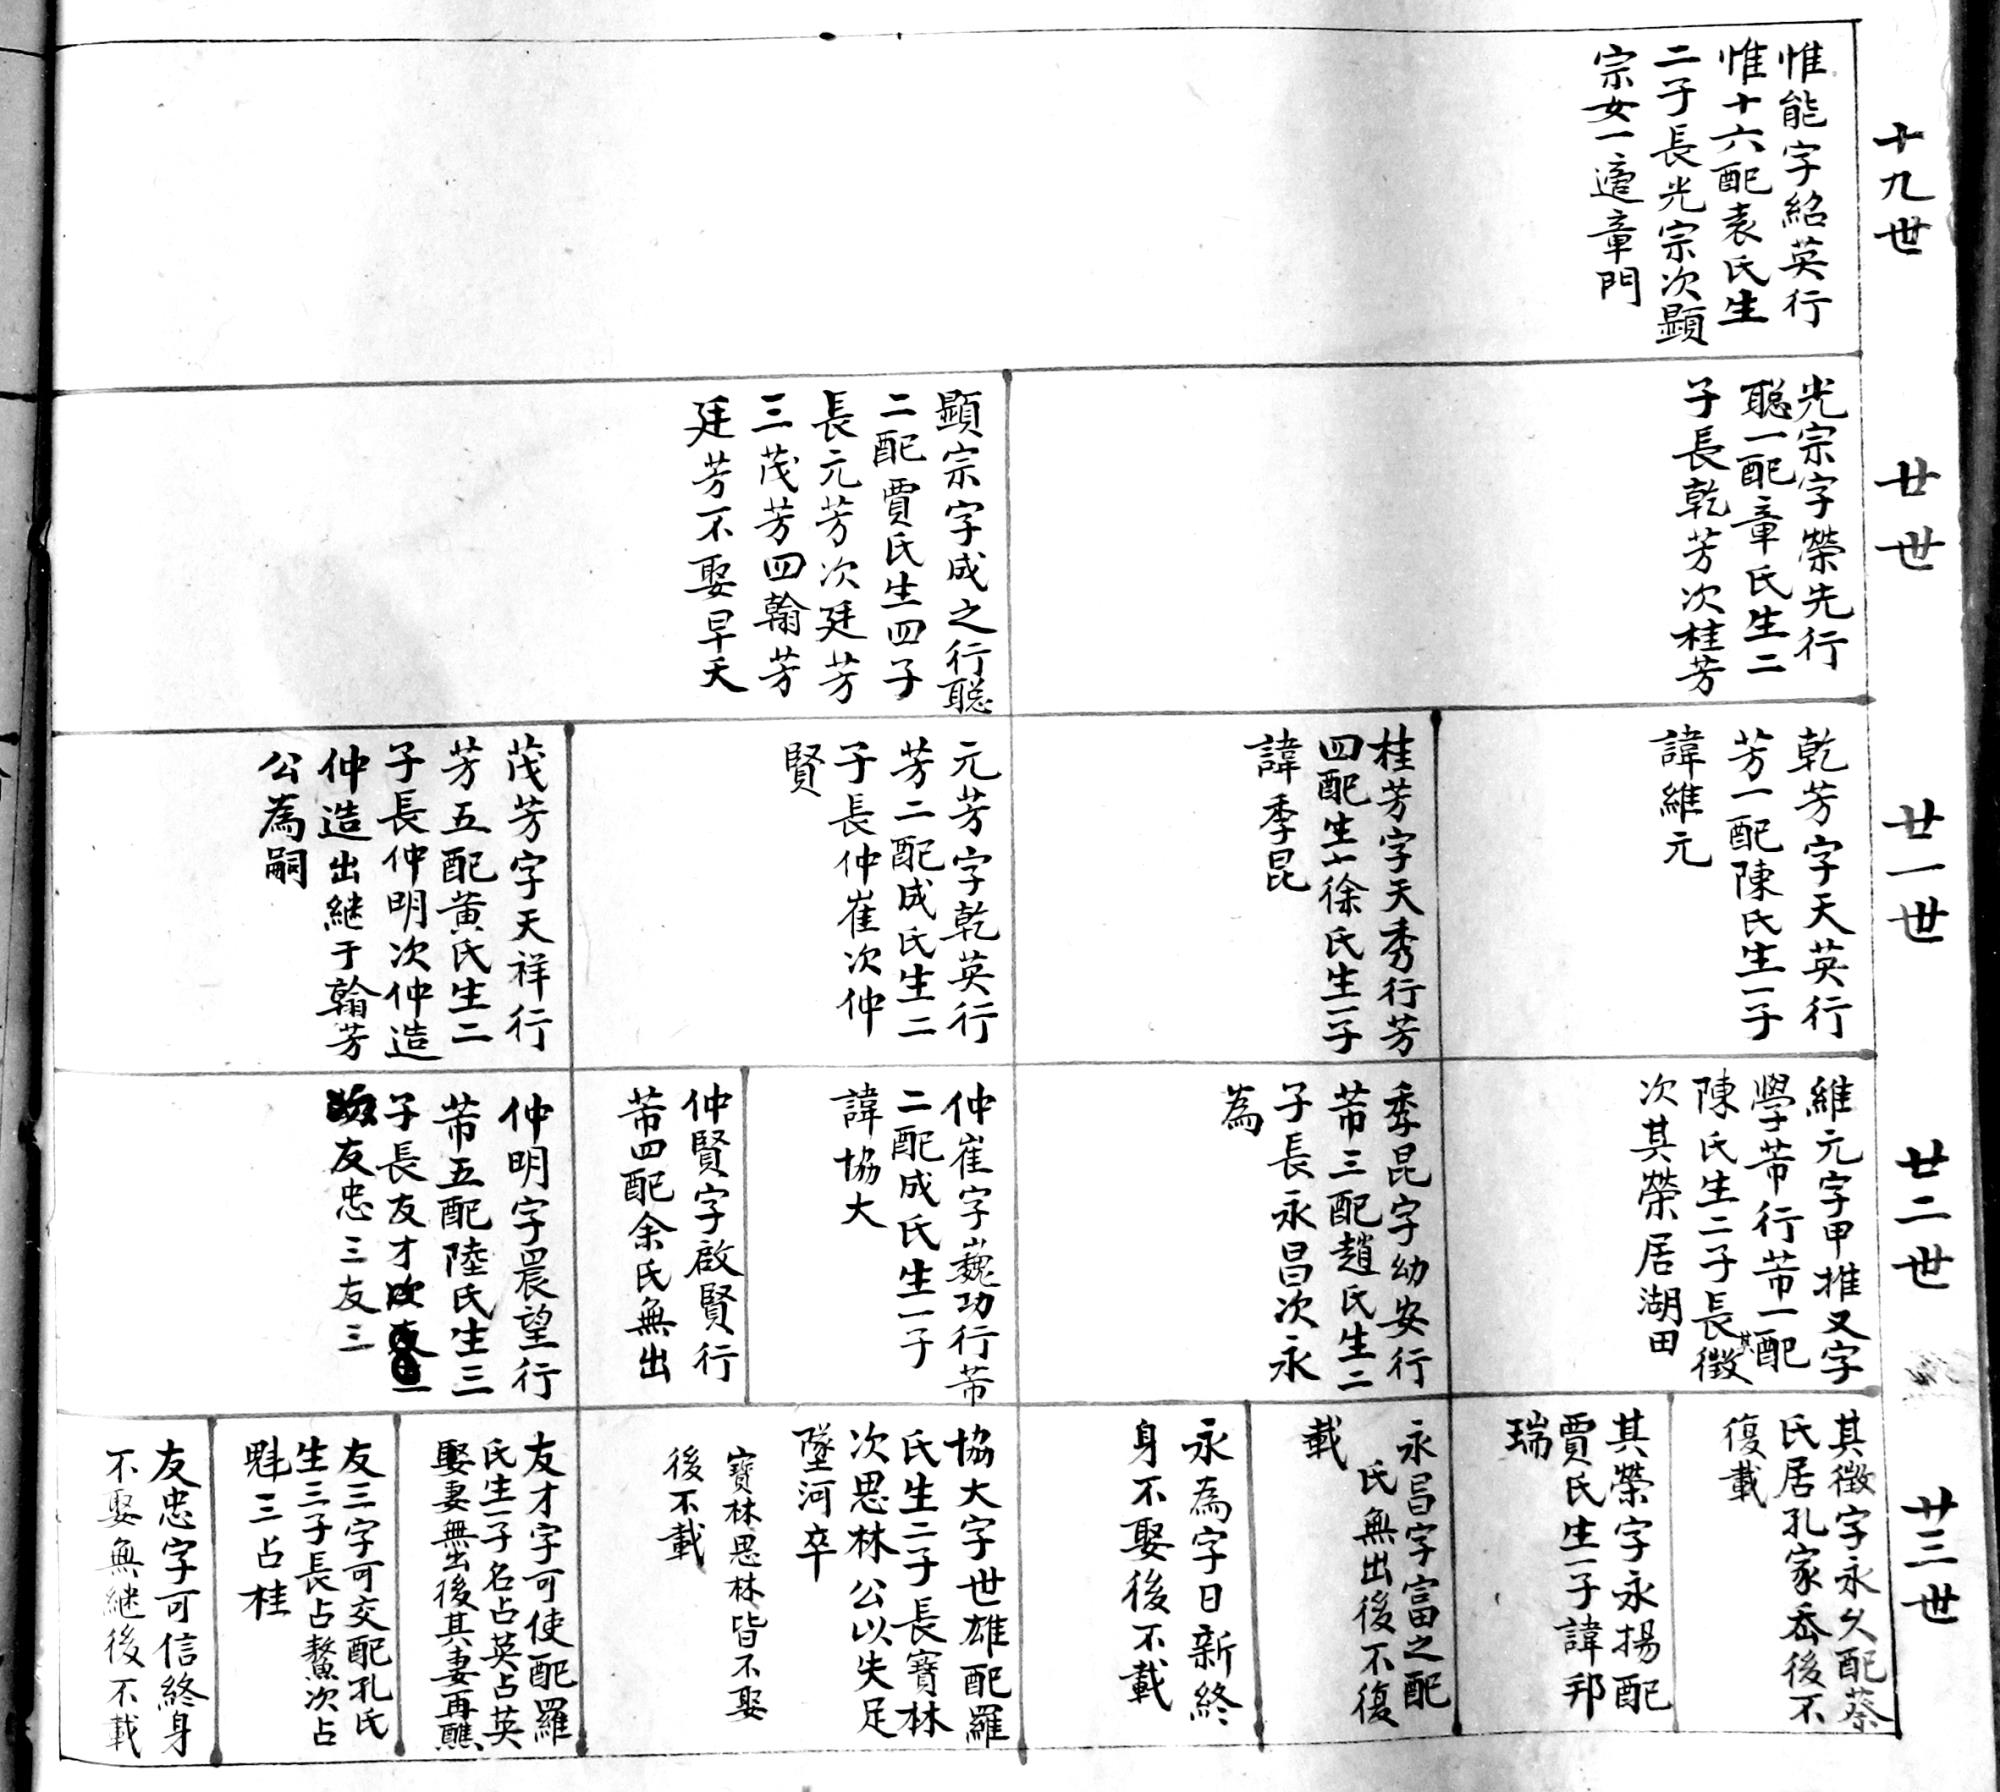 十九世
惟能字紹英行
惟十六配袁氏生
二子長光宗次顯
宗女一適章門
廿世
光宗字榮先行
聡一配章氏生二
子長乾芳次桂芳
顯宗字成之行聡
二配賈氏生四子
長元芳次廷芳
三茂芳四翰芳
廷芳不娶早夭
廿一世
乾芳字天英行
芳一配陳氏生一子
諱維元
桂芳字天秀行芳
四配生十徐氏生一子
諱季昆
元芳字乾英行
芳二配成氏生二
子長仲崔次仲
賢
茂芳字天祥行
芳五配黄氏生二
子長仲明次仲造
仲造出継于翰芳
公為嗣
廿二世
維元字甲推又字
學芾行芾一配
陳氏生二子長其徵
次其榮居湖田
季昆字幼安行
芾三配趙氏生二
子長永昌次永
為
仲崔字巍功行芾
二配成氏生一子
諱協大
仲賢字啟賢行
芾四配余氏無出
仲明字晨望行
芾五配陸氏生三
子長友才次
友忠三友三
廿三世
其徵字永久配蔡
氏居孔家岙後不
復載
其榮字永揚配
賈氏生一子諱邦
瑞
永昌字富之配
氏無出後不復
載
永為字日新終
身不娶後不載
協大字世雄配羅
氏生二子長寶林
次思林公以失足
墜河卒
寶林思林皆不娶
後不載
友才字可使配羅
氏生一子名占英占英
娶妻無出後其妻再醮
友三字可交配孔氏
生三子長占鰲次占
魁三占桂
友忠字可信終身
不娶無継後不載